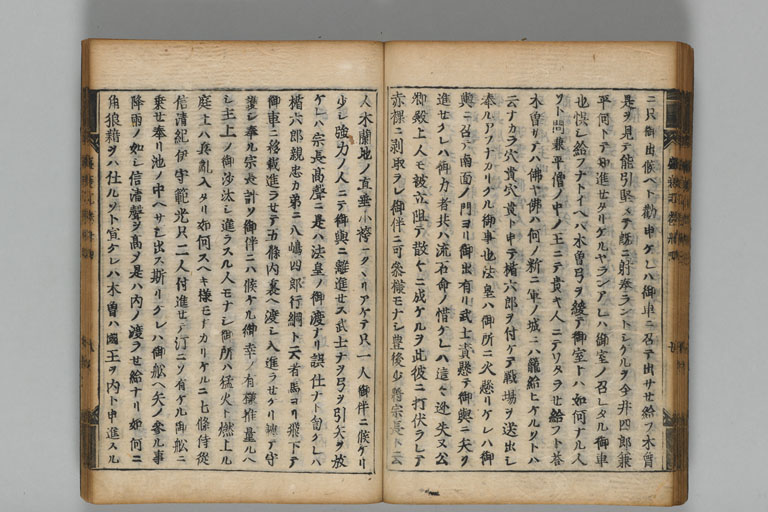 ニ只御出候ヘト勸申ケレハ御車ニ召テ出サセ給フ木曾
是ヲ見テ能引堅メテ既ニ射奉ラントシケルヲ今井四郎兼
平何トテ進セタリケルヤランアレハ御室ノ召レタル御車
也慌シ給フナトイヘハ木曾弓ヲ緩テ御室トハ如何ナル人
ソト問兼平僧ノ中ノ王ニテ貴キ人ニテワタラセ給フト答
木曾リテハ佛ヤ佛ハ何ノ新ニ軍ノ城ニハ籠給ヒケルソトハ
云ナカラ穴貴穴貴ト申テ楯六郎ヲ付ケテ戰場ヲ送出シ
奉ルアフナカリケル御事也法皇ハ御所ニ火懸リケレハ御
輿ニ召テ南面ノ門ヨリ御出有リ武士責懸テ御輿ニ矢ヲ
進セケレハ御力者共ハ流石命ノ惜ケレハ這々逃失又公
卿殿上人モ被立阻テ散々ニ成ケルヲ此彼ニ打伏ラレテ
赤裸ニ剥取ラレ御伴ニ可參樣モナシ豊後少將宗長ト云
人木蘭地ノ直垂小袴ニクヽリアケテ只一人御伴ニ候ケリ
少シ強力ノ人ニテ御輿ニ離進セス武士ナヲ弓ヲ引矢ヲ放
ケレハ宗長高聲ニ是ハ法皇ノ御渡ナリ誤仕ナト宣ケレハ
楯六郎親忠カ弟ニ八嶋四郎行綱ト云者馬ヨリ飛下テ
御車ニ移載進ラセテ五條内裏ヘ渡シ入進ラセケリ稠ク守
護シ奉ル宗長計ソ御伴ニハ候ケル御幸ノ有樣推量ルヘ
シ主上ノ御沙汰シ進ラスル人モナシ御所ハ猛火ト燃上ル
庭上ハ兵亂入タリ如何スヘキ樣モナカリケルニ七條侍從
信清紀伊守範光只二人付進セテ汀ニソ有ケル御舩ニ
乗セ奉リ池ノ中ヘサシ出ス斯リケレハ御舩ヘ矢ノ參ル事
降雨ノ如シ信清聲ヲ高ヲ是ハ内ノ渡ラセ給ナリ如何ニ
角狼藉ヲハ仕ルソト宣ケレハ木曾ハ國王ヲ内ト申進スル